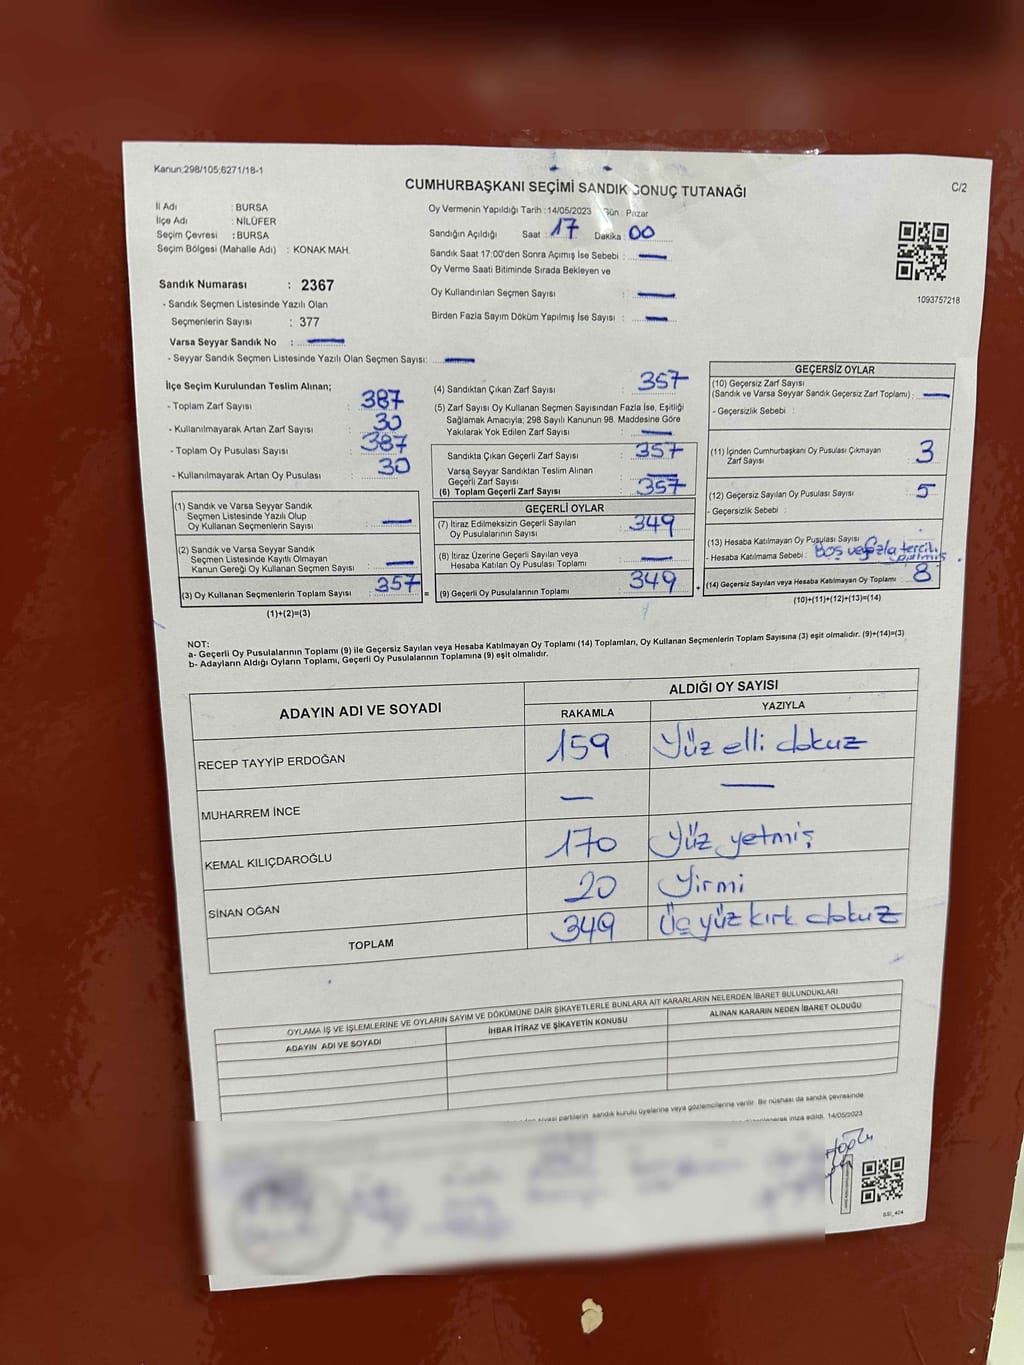 Kanun;298/105;6271/18-1
CUMHURBAŞKANI SEÇİMİ SANDIK SONUÇ TUTANAĞI
C/2
İl Adı : BURSA
İlçe Adı : NİLÜFER
Seçim Çevresi : BURSA
Seçim Bölgesi (Mahalle Adı) : KONAK MAH.
Sandık Numarası : 2367
- Sandık Seçmen Listesinde Yazılı Olan
Seçmenlerin Sayısı : 377
Varsa Seyyar Sandık No : —
- Seyyar Sandık Seçmen Listesinde Yazılı Olan Seçmen Sayısı: —
Oy Vermenin Yapıldığı Tarih : 14/05/2023 Gün : Pazar
Sandığın Açıldığı Saat : 17 Dakika : 00
Sandık Saat 17:00'den Sonra Açımış İse Sebebi : —
Oy Verme Saati Bitiminde Sırada Bekleyen ve
Oy Kullandırılan Seçmen Sayısı : —
Birden Fazla Sayım Döküm Yapılmış İse Sayısı : —
1093757218
İlçe Seçim Kurulundan Teslim Alınan;
- Toplam Zarf Sayısı : 387
- Kullanılmayarak Artan Zarf Sayısı : 30
- Toplam Oy Pusulası Sayısı : 387
- Kullanılmayarak Artan Oy Pusulası : 30
(1) Sandık ve Varsa Seyyar Sandık
Seçmen Listesinde Yazılı Olup
Oy Kullanan Seçmenlerin Sayısı : —
(2) Sandık ve Varsa Seyyar Sandık
Seçmen Listesinde Kayıtlı Olmayan
Kanun Gereği Oy Kullanan Seçmen Sayısı : —
(3) Oy Kullanan Seçmenlerin Toplam Sayısı : 357
(1)+(2)=(3)
(4) Sandıktan Çıkan Zarf Sayısı : 357
(5) Zarf Sayısı Oy Kullanan Seçmen Sayısından Fazla İse, Eşitliği
Sağlamak Amacıyla, 298 Sayılı Kanunun 98. Maddesine Göre
Yakılarak Yok Edilen Zarf Sayısı : —
Sandıkta Çıkan Geçerli Zarf Sayısı : 357
Varsa Seyyar Sandıktan Teslim Alınan
Geçerli Zarf Sayısı : —
(6) Toplam Geçerli Zarf Sayısı : 357
GEÇERLİ OYLAR
(7) İtiraz Edilmeksizin Geçerli Sayılan
Oy Pusulalarının Sayısı : 349
(8) İtiraz Üzerine Geçerli Sayılan veya
Hesaba Katılan Oy Pusulası Toplamı : —
(9) Geçerli Oy Pusulalarının Toplamı : 349
GEÇERSİZ OYLAR
(10) Geçersiz Zarf Sayısı
(Sandık ve Varsa Seyyar Sandık Geçersiz Zarf Toplamı) : —
- Geçersizlik Sebebi :
(11) İçinden Cumhurbaşkanı Oy Pusulası Çıkmayan
Zarf Sayısı : 3
(12) Geçersiz Sayılan Oy Pusulası Sayısı : 5
- Geçersizlik Sebebi :
(13) Hesaba Katılmayan Oy Pusulası Sayısı :
- Hesaba Katılmama Sebebi : Boş ve fazla tercih
(14) Geçersiz Sayılan veya Hesaba Katılmayan Oy Toplamı : 8
(10)+(11)+(12)+(13)=(14)
NOT:
a- Geçerli Oy Pusulalarının Toplamı (9) ile Geçersiz Sayılan veya Hesaba Katılmayan Oy Toplamı (14) Toplamları, Oy Kullanan Seçmenlerin Toplam Sayısına (3) eşit olmalıdır. (9)+(14)=(3)
b- Adayların Aldığı Oyların Toplamı, Geçerli Oy Pusulalarının Toplamına (9) eşit olmalıdır.
ADAYIN ADI VE SOYADI
ALDIĞI OY SAYISI
RAKAMLA YAZIYLA
RECEP TAYYİP ERDOĞAN 159 Yüz elli dokuz
MUHARREM İNCE — —
KEMAL KILIÇDAROĞLU 170 Yüz yetmiş
SİNAN OĞAN 20 Yirmi
TOPLAM 349 Üç yüz kırk dokuz
OYLAMA İŞ VE İŞLEMLERİNE VE OYLARIN SAYIM VE DÖKÜMÜNE DAİR ŞİKAYETLERLE BUNLARA AİT KARARLARIN NELERDEN İBARET BULUNDUKLARI
ADAYIN ADI VE SOYADI
İHBAR İTİRAZ VE ŞİKAYETİN KONUSU
ALINAN KARARIN NEDEN İBARET OLDUĞU
siyasi partilerin sandık kurulu üyelerine veya gözlemcilerine verilir. Bir nüshası da sandık çevresinde
imza edildi. 14/05/2023